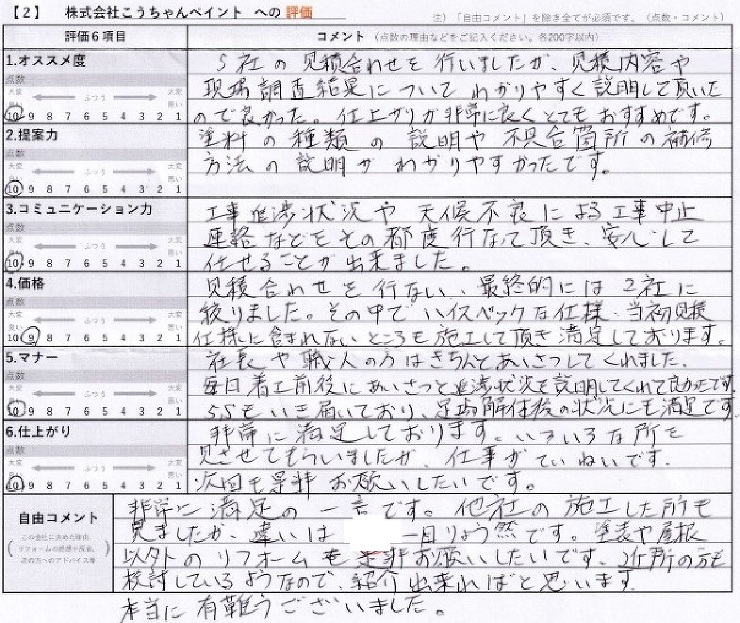 【2】 株式会社こうちゃんペイント への評価
注）「自由コメント」を除き全てが必須です。（点数・コメント）
評価6項目 コメント（点数の理由などをご記入ください。各200字以内）
1.オススメ度
点数
大変良い ふつう 大変悪い
10 9 8 7 6 5 4 3 2 1
5社の見積合わせを行いましたが、見積内容や
現場調査結果について わかりやすく説明して頂いた
ので良かった。仕上がりが非常に良くとてもおすすめです。
2.提案力
点数
大変良い ふつう 大変悪い
10 9 8 7 6 5 4 3 2 1
塗料の種類の説明や不具合箇所の補修
方法の説明がわかりやすかったです。
3.コミュニケーション力
点数
大変良い ふつう 大変悪い
10 9 8 7 6 5 4 3 2 1
工事進渉状況や天候不良による工事中止
連絡などをその都度行なって頂き、安心して
任せることが出来ました。
4.価格
点数
大変良い ふつう 大変悪い
10 9 8 7 6 5 4 3 2 1
見積合わせを行ない、最終的には2社に
絞りました。その中でハイスペックな仕様・当初見積
仕様に含まれないところも施工して頂き満足しております。
5.マナー
点数
大変良い ふつう 大変悪い
10 9 8 7 6 5 4 3 2 1
社長や職人の方はきちんとあいさつしてくれました。
毎日着工前後にあいさつと進渉状況を説明してくれて良かったです。
5Sもいき届いており、足場解体後の状況にも満足です。
6.仕上がり
点数
大変良い ふつう 大変悪い
10 9 8 7 6 5 4 3 2 1
非常に満足しております。いろいろな所を
見させてもらいましたが、仕事がていねいです。
次回も是非お願いしたいです。
自由コメント
この会社に決めた理由、
リフォームの感想や反省、
次の方へのアドバイス等
非常に満足の一言です。他社の施工した所も
見ましたが、違いは 一目りょう然です。塗装や屋根
以外のリフォームも是非お願いしたいです。近所の方も
検討しているようなので、紹介出来ればと思います。
本当に有難うございました。